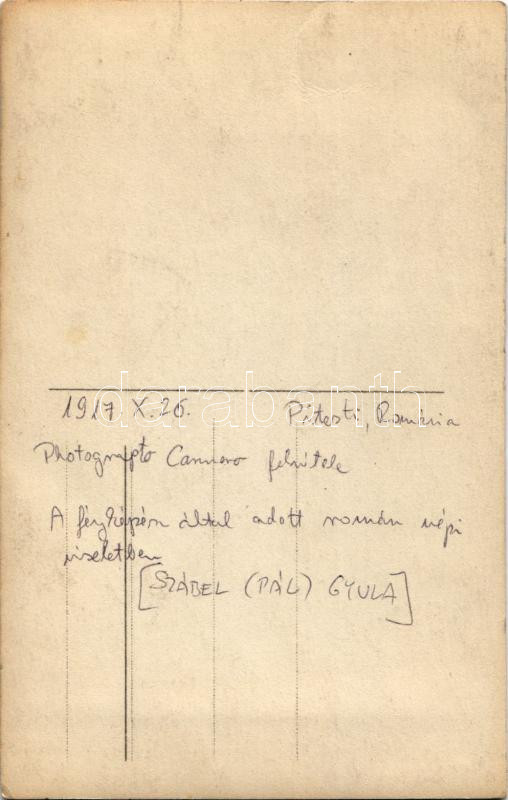 1917. X. 26. Pitesti, Románia
Photographo Carmero felvétele
A fényképész által adott román népi
viseletben
[SZÁBEL (PÁL) GYULA]
darabanth